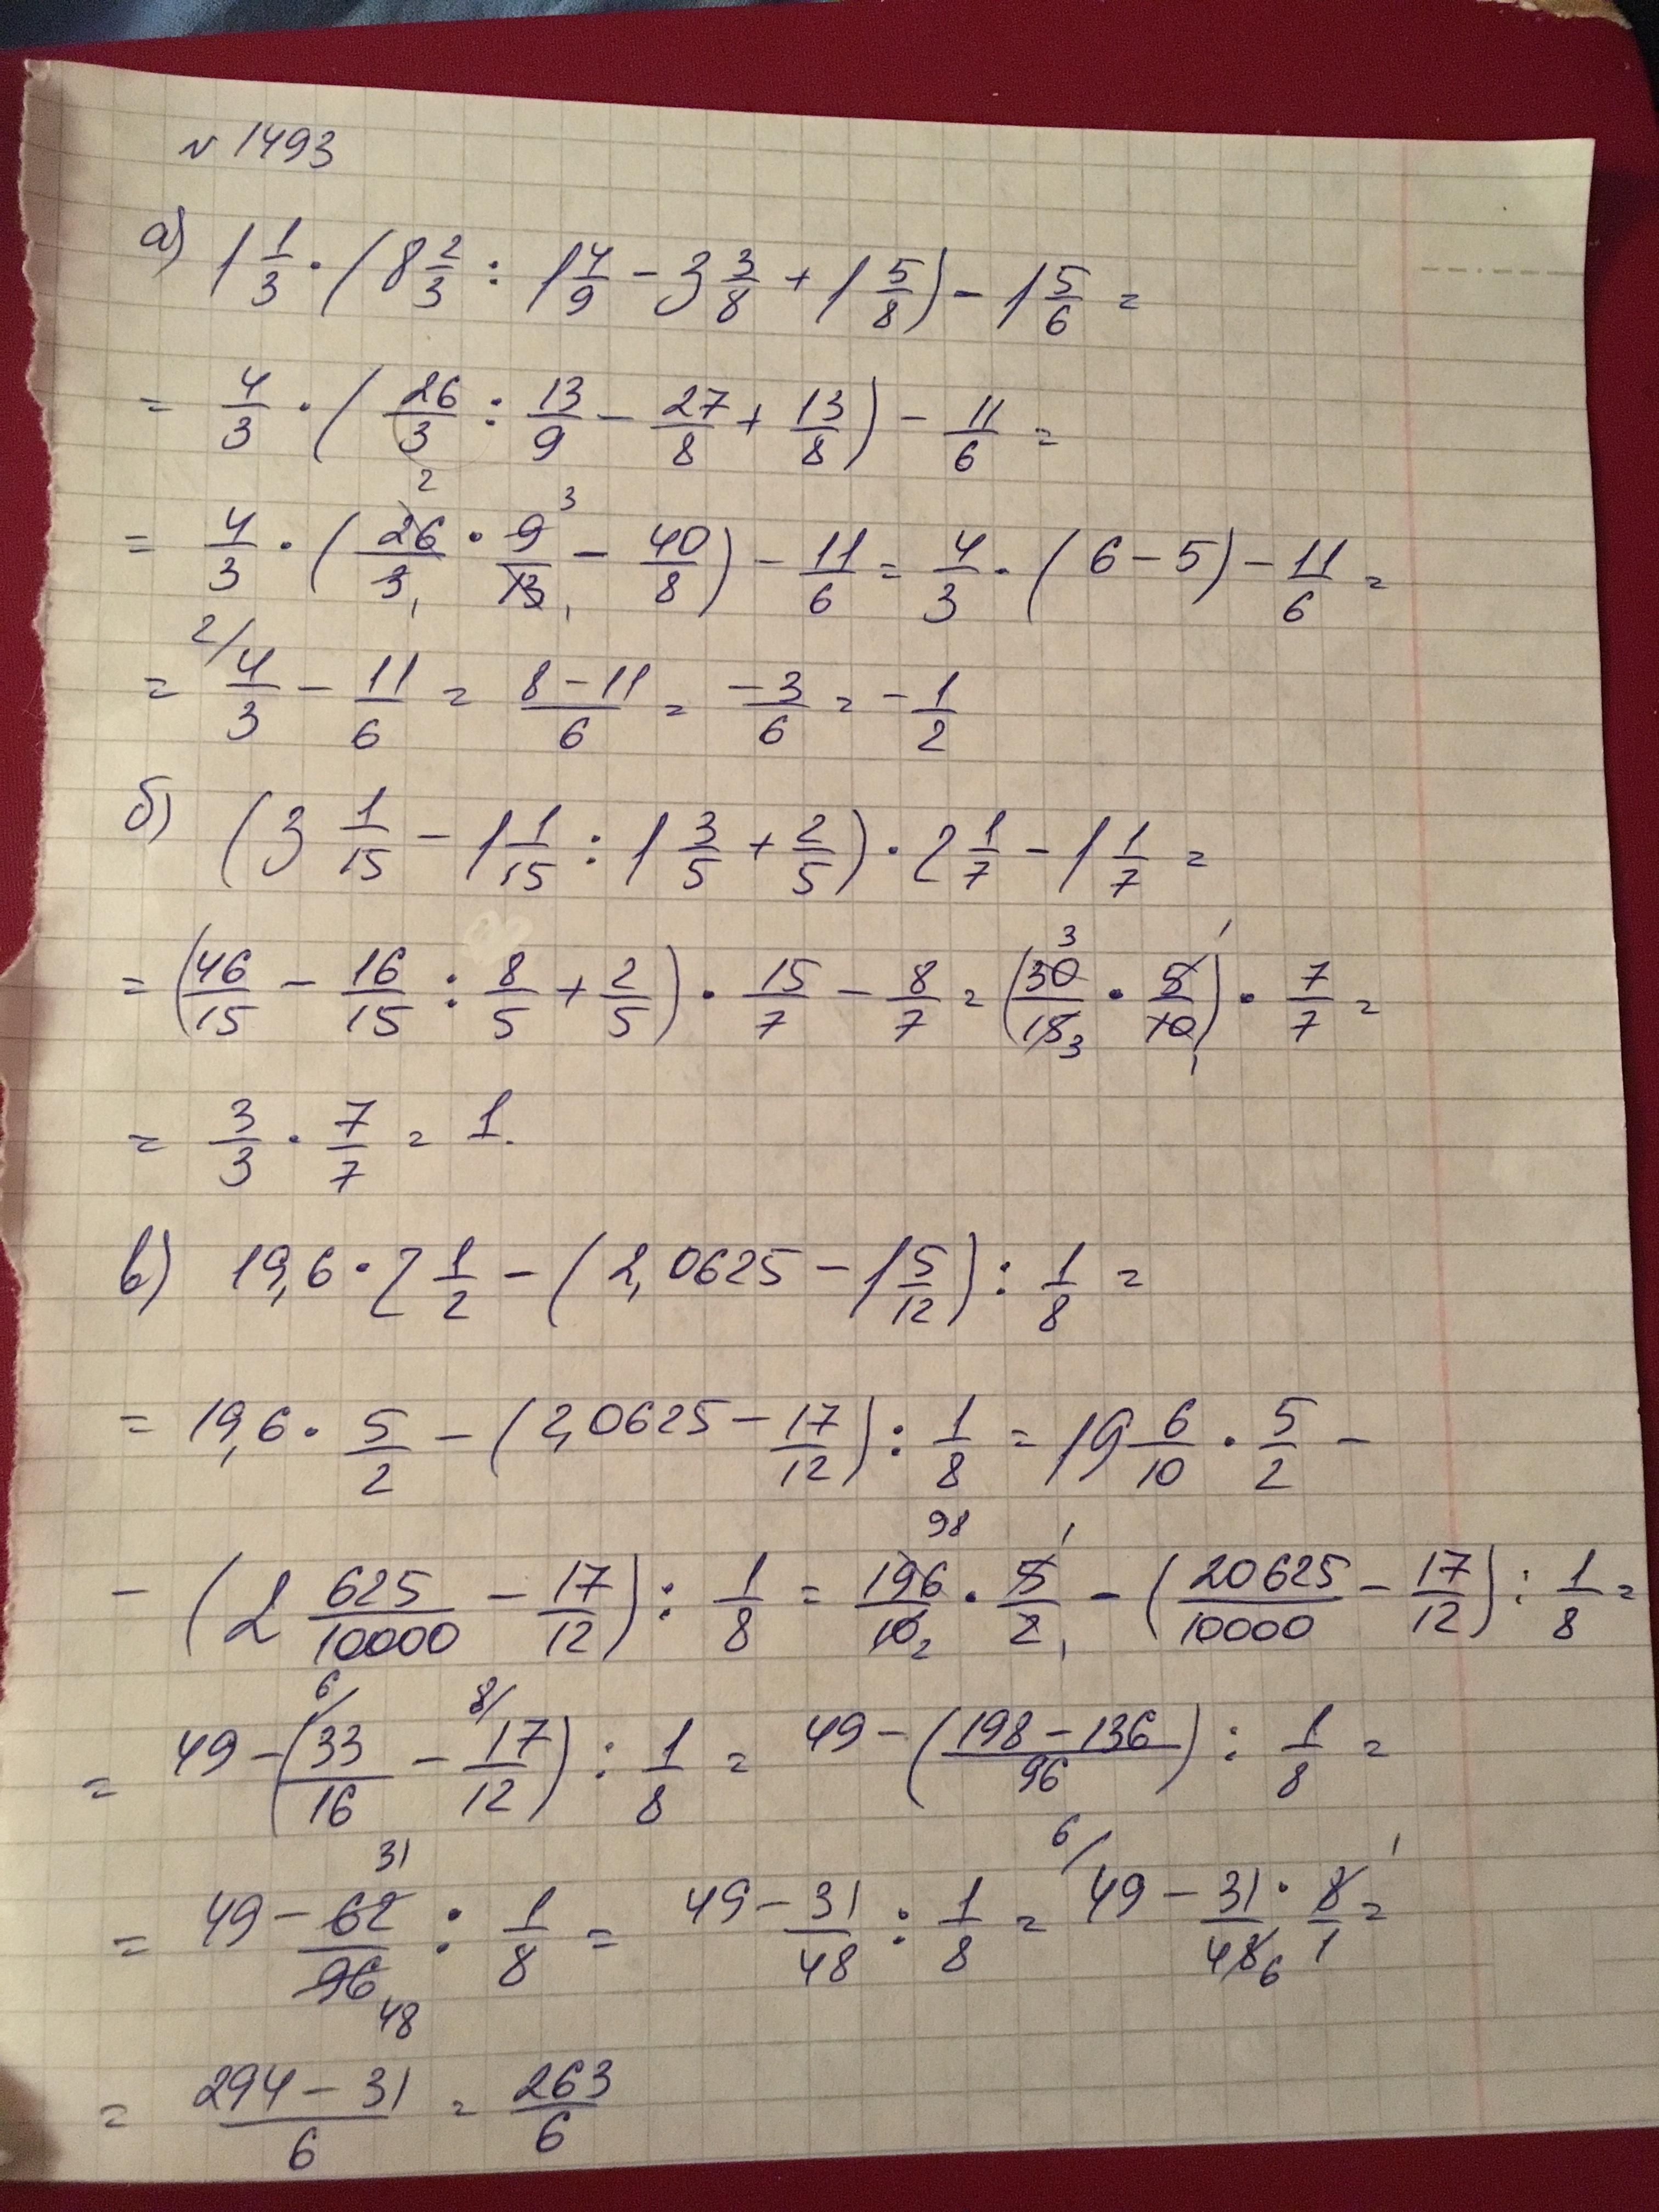 № 1493
а) 1 1/3 · (8 2/3 : 1 4/9 - 3 3/8 + 1 5/8) - 1 5/6 =
= 4/3 · (26/3 : 13/9 - 27/8 + 13/8) - 11/6 =
= 4/3 · (26 2/3 1 · 9 3/13 1 - 40/8) - 11/6 = 4/3 · (6 - 5) - 11/6 =
= 2/ 4/3 - 11/6 = 8 - 11/6 = -3/6 = -1/2
б) (3 1/15 - 1 1/15 : 1 3/5 + 2/5) · 2 1/7 - 1 1/7 =
= (46/15 - 16/15 : 8/5 + 2/5) · 15/7 - 8/7 = (30 3/15 3 · 5 1/10 1) · 7/7 =
= 3/3 · 7/7 = 1.
в) 19,6 · 2 1/2 - (2,0625 - 1 5/12) : 1/8 =
= 19,6 · 5/2 - (2,0625 - 17/12) : 1/8 = 19 6/10 · 5/2 -
- (2 625/10000 - 17/12) : 1/8 = 196 98/10 2 · 5 1/2 1 - (20625/10000 - 17/12) : 1/8 =
= 49 - (6/ 33/16 - 8/ 17/12) : 1/8 = 49 - (198 - 136/96) : 1/8 =
= 49 - 62 31/96 48 : 1/8 = 49 - 31/48 : 1/8 = 6/ 49 - 31/48 6 · 8 1/1 =
= 294 - 31/6 = 263/6